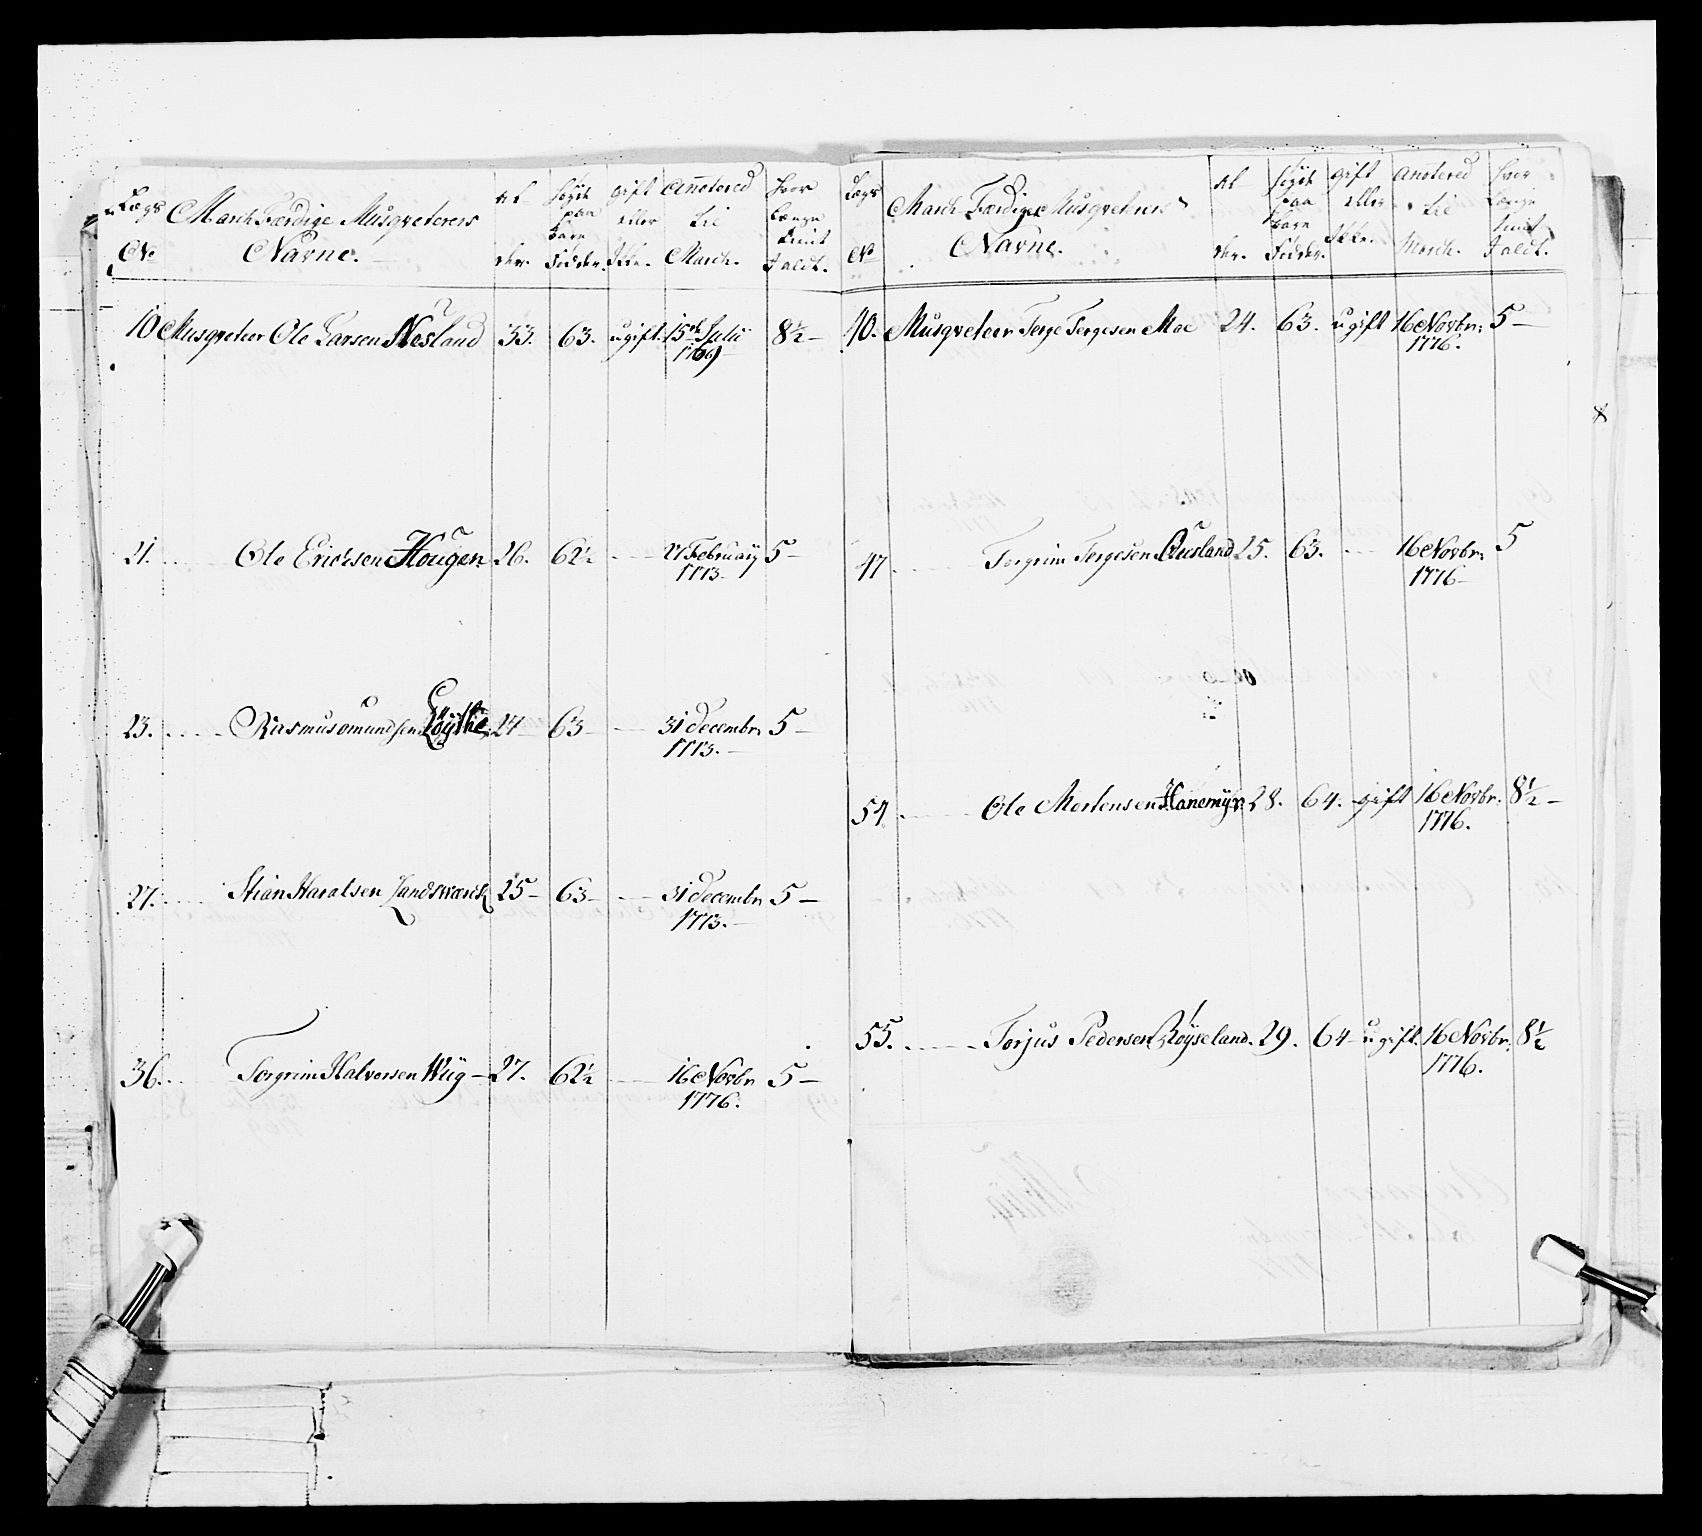 Lægs No | March Færdige Musqveterers Navne. | Al der. | Høyde paa bare Födder. | gift eller Ikke. | Anotered til March. | Hvor Længe tient I aldt.
10 Musqveteer Ole Larsen Nesland 33. 63. ugift. 15de Julii 1769 8½ –
21. Ole Erichsen Hougen 26. 62½ 27 Februarij 1773. 5 –
23. Rasmus omundsen Löythe 24 63 – 31 decembr 1773. – 5 –
27. Stian Haralsen Landsværck 25 – 63 – 31 decembr 1773. – 5 –
36. Torgrim Halvorsen Wiig – 27. 62½ 16 Novbr 1776. 5 –
Lægs No | March Færdige Musqveterers Navne. | Al der. | Høyde paa bare Födder. | gift eller Ikke. | Anotered til March. | Hvor Længe tient I aldt.
40. Musqveteer Terge Tergesen Moe 24. 63. ugift 16 Novbr: 1776. 5 –
47 Torgrim Tergesen Ausland 25. 63. 16 Novbr: 1776 – 5
54 Ole Mortensen Hanemÿr 28. 64. gift 16 Novbr. 1776. 8½ –
55. Torjus Pedersen Röyseland. 29. 64 – ugift. 16 Novbr: 1776. 8½